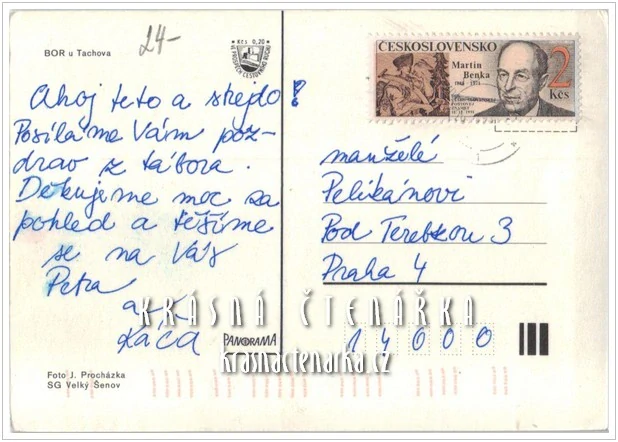 BOR u Tachova
24-
Kčs 0,20
VE PROSPĚCH CESTOVNÍHO RUCHU
ČESKOSLOVENSKO
Martin
Benka
1888 1971
2
Kčs
Ahoj teto a strejdo!
Posíláme Vám poz-
drav z tábora.
Děkujeme moc za
pohled a těšíme
se na Vás
Petra
a
Káča
manželé
Pelikánovi
Pod Terebkou 3
Praha 4
14000
KRÁSNÁ ČTENÁŘKA
krasnactenarka.cz
PANORAMA
Foto J. Procházka
SG Velký Šenov